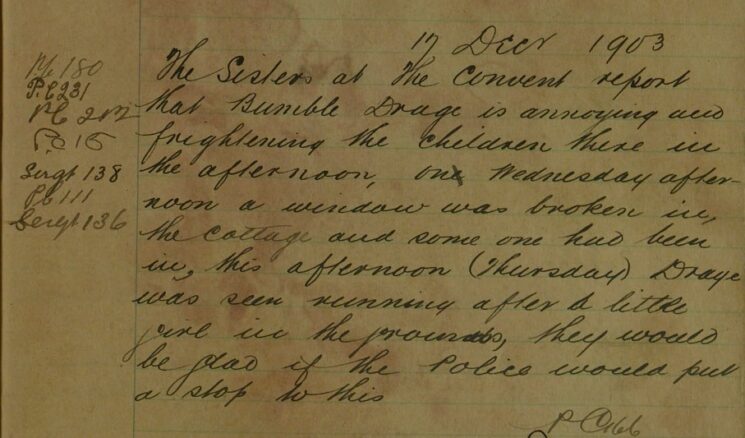 17 Decr 1903
Pc 180
P.C 231
Pc 202
P.C 15
Sergt 138
PC 111
Sergt 136
The Sisters at The Convent report
that Bumble Drage is annoying and
frightening the children there in
the afternoon, one Wednesday after-
noon a window was broken in,
the Cottage and some one had been
in, this afternoon (Thursday) Drage
was seen running after a little
girl in the grounds, they would
be glad if the Police would put
a stop to this